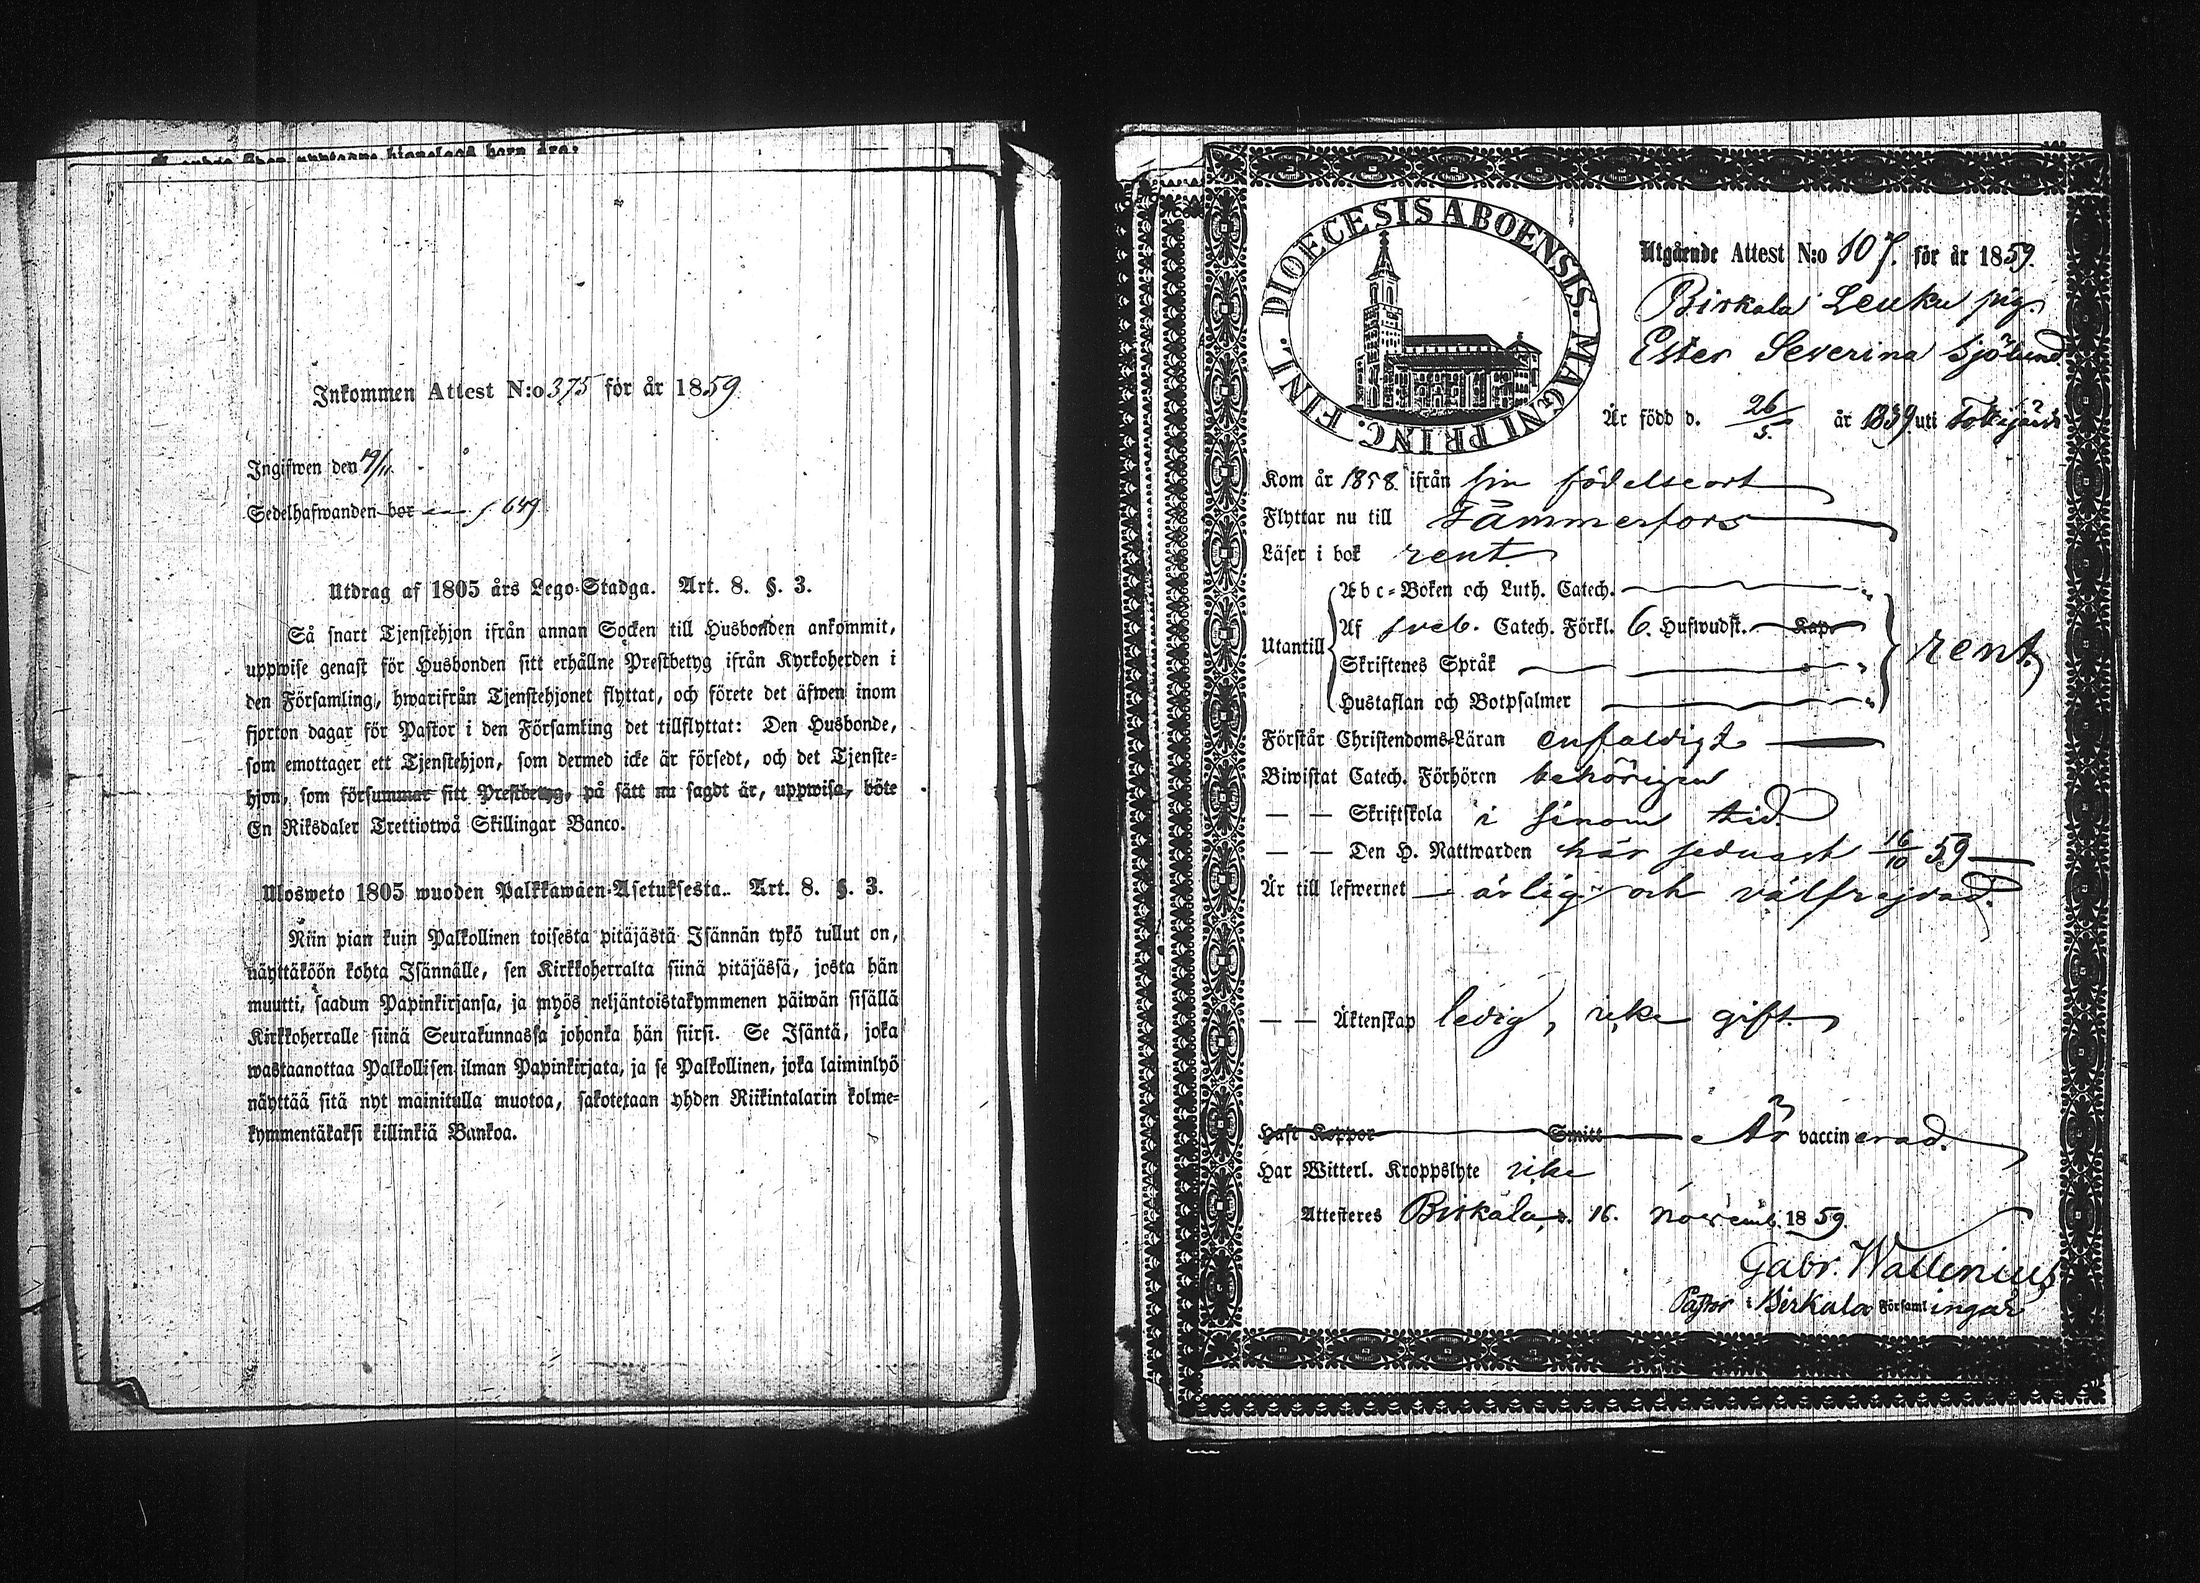 Inkommen Attest N:o 375 för år 1859
Ingifwen den 19/11.
Sedelhafwanden bor f 649
Utdrag af 1805 års Lego-Stadga. Art. 8. §. 3.
Så snart Tjenstehjon ifrån annan Socken till Husbonden ankommit,
uppwise genast för Husbonden sitt erhållne Prestbetyg ifrån Kyrkoherden i
den Församling, hwarifrån Tjenstehjonet flyttat, och förete det äfwen inom
fjorton dagar för Pastor i den Församling det tillflyttat: Den Husbonde,
som emottager ett Tjenstehjon, som dermed icke är försedt, och det Tjenste-
hjon, som försummar sitt Prestbetyg, på sätt nu sagdt är, uppwisa, böte
En Riksdaler Trettiotwå Skillingar Banco.
Ulosweto 1805 wuoden Palkkawäen-Asetuksesta. Art. 8. §. 3.
Niin pian kuin Palkollinen toisesta pitäjästä Isännän tykö tullut on,
näyttäköön kohta Isännälle, sen Kirkkoherralta siinä pitäjässä, josta hän
muutti, saadun Papinkirjansa, ja myös neljäntoistakymmenen päiwän sisällä
Kirkkoherralle siinä Seurakunnassa johonka hän siirsi. Se Isäntä, joka
wastaanottaa Palkollisen ilman Papinkirjata, ja se Palkollinen, joka laiminlyö
näyttää sitä nyt mainitulla muotoa, sakotetaan yhden Riikintalarin kolme-
kymmentäkaksi killinkiä Bankoa.
DIOECESIS ABOENSIS. MAGNI PRINC. FINL.
Utgående Attest N:o 107. för år 1859.
Birkala Leuku pig.
Ester Severina Sjölund
Är född d. 26/5. år 1839 uti
Kom år 1858 ifrån sin födelseort
Flyttar nu till Tammerfors
Läser i bok rent.
Abc-Boken och Luth. Catech.
Utantill Af sveb. Catech. Förkl. 6. Hufwudst. Kap. rent.
Skriftenes Språk
Hustaflan och Botpsalmer
Förstår Christendoms-Läran enfaldigt
Biwistat Catech. Förhören behörigen
— — Skriftskola i sinom tid.
— — Den H. Nattwarden här sednast 16/10 59
Är till lefwernet ärlig och välfrejdad.
— — Äktenskap ledig, icke gift.
Haft Koppor Smitt Är vaccinerad.
Har Witterl. Kroppslyte icke
Attesteres Birkala, d. 16. Novemb. 1859.
Gabr. Wallenius
Pastor i Birkala Församlingar